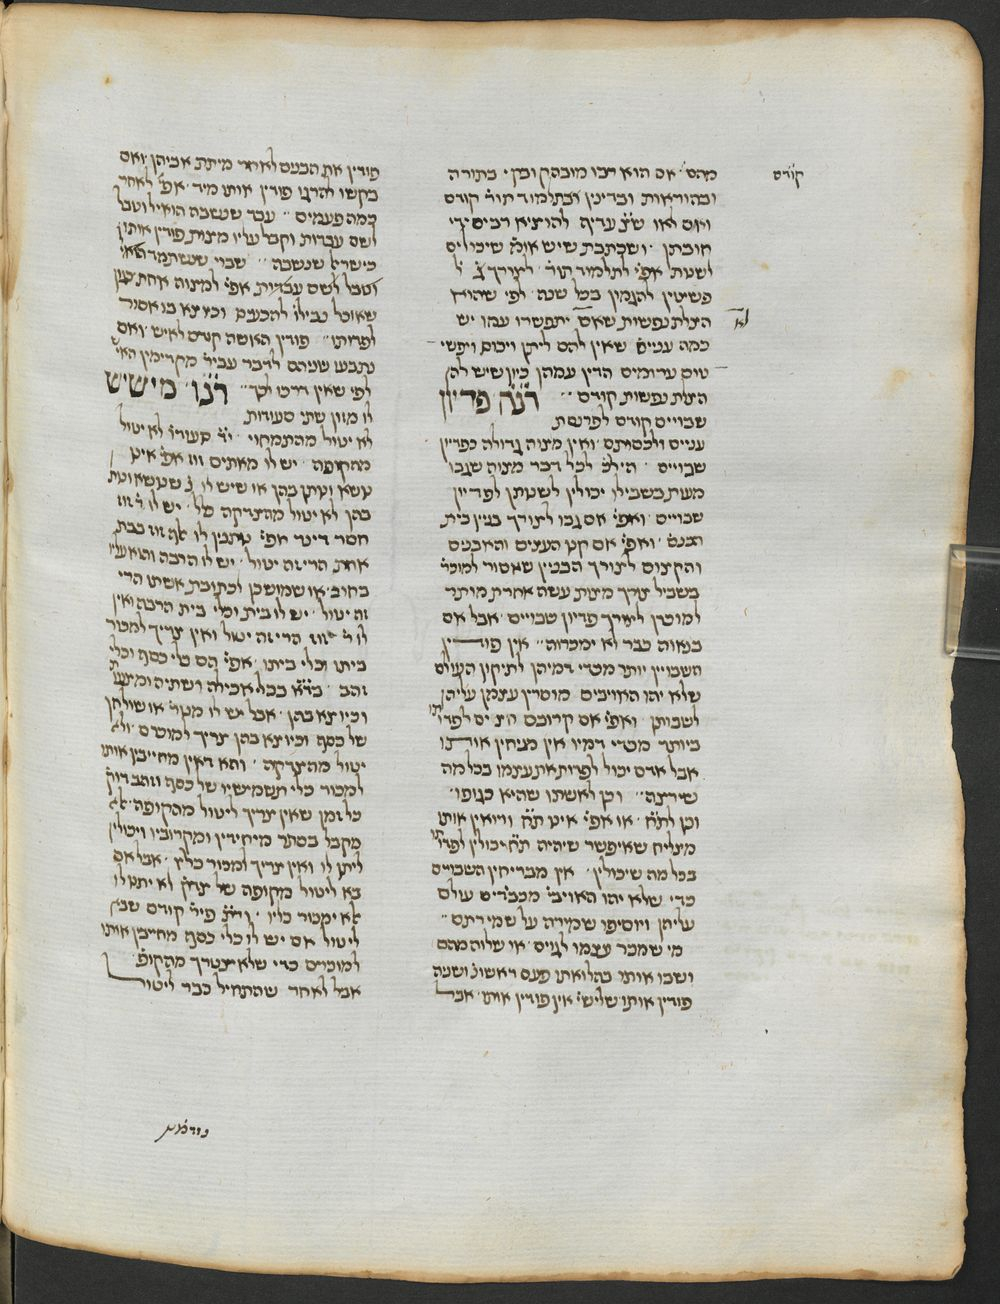 קודם
מהם׳ אם הוא רבו מובהק ובן׳ בתורה
ובהוראות ובדינין ובתלמוד תור׳ קודם
ואם לאו שצ׳ עדיף להוציא רבים ידי
חובתן ׳ ושכתבת שיש אומ׳ שיכולים
לשנות אפי׳ לתלמוד תור׳ לצורך ל׳
פשיטין להגמון בכל שנה לפי שהוא
הצלת נפשות שאם יתפשרו עמו יש
כמה עניים שאין להם ליתן ויכום ויפשי־
טום ערומים הדין עמהן כיון שיש להן
הצלת נפשות קודם ׳׳ רנה פדיון
שבויים קודם לפרנסת
עניים ולכסותם ׳ ואין מצוה גדולה כפדיון
שבויים ׳ הילכ׳ לכל דבר מצוה שגבו
מעות בשבילו יכולין לשנותן לפדיון
שבויים ׳ ואפי׳ אם גבו לצורך בנין בית
הכנס׳ ׳ ואפי׳ אם קנו העצים והאבנים
והקצום לצורך הבנין שאסור למוכר׳
בשביל צורך מצות עשה אחרת מותר
למוכרן לצורך פדיון שבויים ׳ אבל אם
בנאוה כבר לא ימכרוה׳׳ אין פודין
השבויין יותר מכדי דמיהן לתיקון העולם
שלא יהו האויבים מוסרין עצמן עליהן
לשבותן ׳ ואפי׳ אם קרובים רוצים לפדותן
ביותר מכדי דמיו אין מניחין אותו
אבל אדם יכול לפדות את עצמו בכל מה
שירצה׳׳ וכן לאשתו שהיא כגופו׳
וכן לת׳ח׳ ׳ או אפי׳ אינו ת׳ח ורואין אותו
מצליח שאיפשר שיהיה ת׳ח יכולין לפדותו
בכל מה שיכולין׳ אין מבריחין השבויים
כדי שלא יהו האויבי׳ מכבידים עולם
עליהן ויוסיפו שמירה על שמירתם׳׳
מי שמכר עצמו לגוים ׳ או שלוה מהם
ושבו אותו בהלואתו פעם ראשונ׳ ושניה
פודין אותו שלישי׳ אין פודין אותו׳ אבל
פודין את הבנים לאחר מיתת אביהן ׳ ואם
בקשו להרגו פודין אותו מיד ׳ אפי׳ לאחר
כמה פעמים ׳׳ עבד שנשבה הואיל וטבל
לשם עבדות וקבל עליו מצות פודין אותו
כישראל שנשבה ׳׳ שבוי שנשתמד
וטבל לשם עבדות אפי׳ למצוה אחת כגון
שאוכל נבילו׳ להכעיס וכיוצא בו אסור
לפדותו׳׳ פודין האשה קודם לאיש ׳ ואם
נתבעו שניהם לדבר עביר׳ מקדימין האיש
לפי שאין דרכו לכך׳׳ רנו מי שיש
לו מזון שתי סעודות
לא יטול מהתמחוי ׳ י׳ד סעודו׳ לא יטול
מהקופה ׳ יש לו מאתים זוז אפי׳ אינו
נושא ונותן בהן או שיש לו נ׳ שנושא ונותן
בהן לא יטול מהצדקה כלל ׳ יש לו ר׳ זוז
חסר דינר אפי׳ נותנין לו אלף זוז בבת
אחת הרי זה יטול׳ יש לו הרבה והוא עליו
בחוב ׳ או שמושכן לכתובת אשתו הרי
זה יטול׳ יש לו בית וכלי בית הרבה ואין
לו ר׳ זוז הרי זה יטול ואין צריך למכור
ביתו וכלי ביתו׳ אפי׳ הם כלי כסף וכלי
זהב ׳ בד׳׳א בכלי אכילה ושתיה ומצעות
וכיוצא בהן׳ אבל יש לו מגרד או שולחן
של כסף וכיוצא בהן צריך למוכרם ׳ ולא
יטול מהצדקה ׳ והא דאין מחייבין אותו
למכור כלי תשמישיו של כסף וזהב דוק׳
כל זמן שאין צריך ליטול מהקופה אלא
מקבל בסתר מיחידין ומקרוביו ויכולין
ליתן לו ואין צריך למכור כליו׳ ׳ אבל אם
בא ליטול מקופה של צדק׳ לא יתנו לו
אא ימכור כליו ׳ ור׳ת פיר׳ קודם שבא
ליטול אם יש לו כלי כסף מחייבין אותו
למוכרם כדי שלא יצטרך מהקופ׳
אבל לאחר שהתחיל כבר ליטול